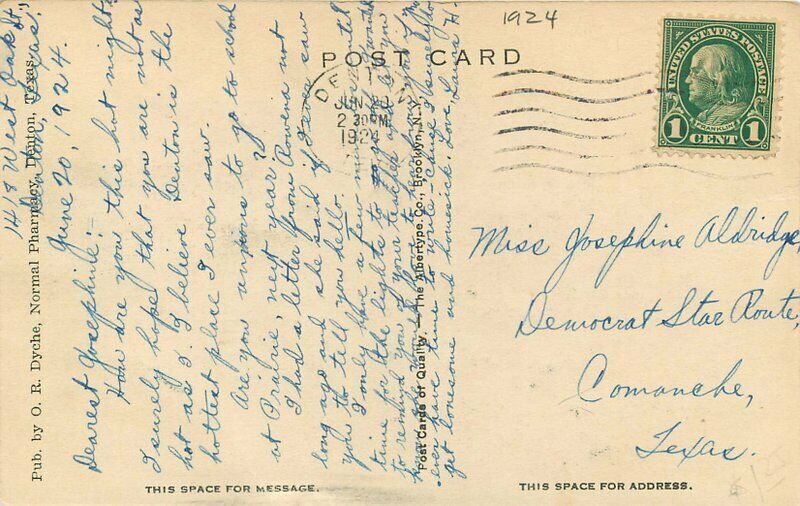 1924
POST CARD
DENTON
JUN 20
2 30 PM
1924
UNITED STATES POSTAGE
FRANKLIN
1 CENT 1
1418 West Oak St.,
Denton, Texas,
June 20, 1924.
Dearest Josephine:-
How are you this hot night?
I surely hope that you are not as
hot as I. I believe Denton is the
hottest place I ever saw.
Are you anxious to go to school
at Prairie, next year?
I had a letter from Rowena not
long ago and she said if I ever saw
you to tell you hello.
I only have a few minutes until
time for the lights to go out
to remind you of your
ever have time to write - cause I surely do
get lonesome and homesick. Love, Laura H.
Miss Josephine Aldridge,
Democrat Star Route,
Comanche,
Texas.
Pub. by O. R. Dyche, Normal Pharmacy, Denton, Texas.
Post Cards of Quality. — The Albertype Co., Brooklyn, N. Y.
THIS SPACE FOR MESSAGE.
THIS SPACE FOR ADDRESS.